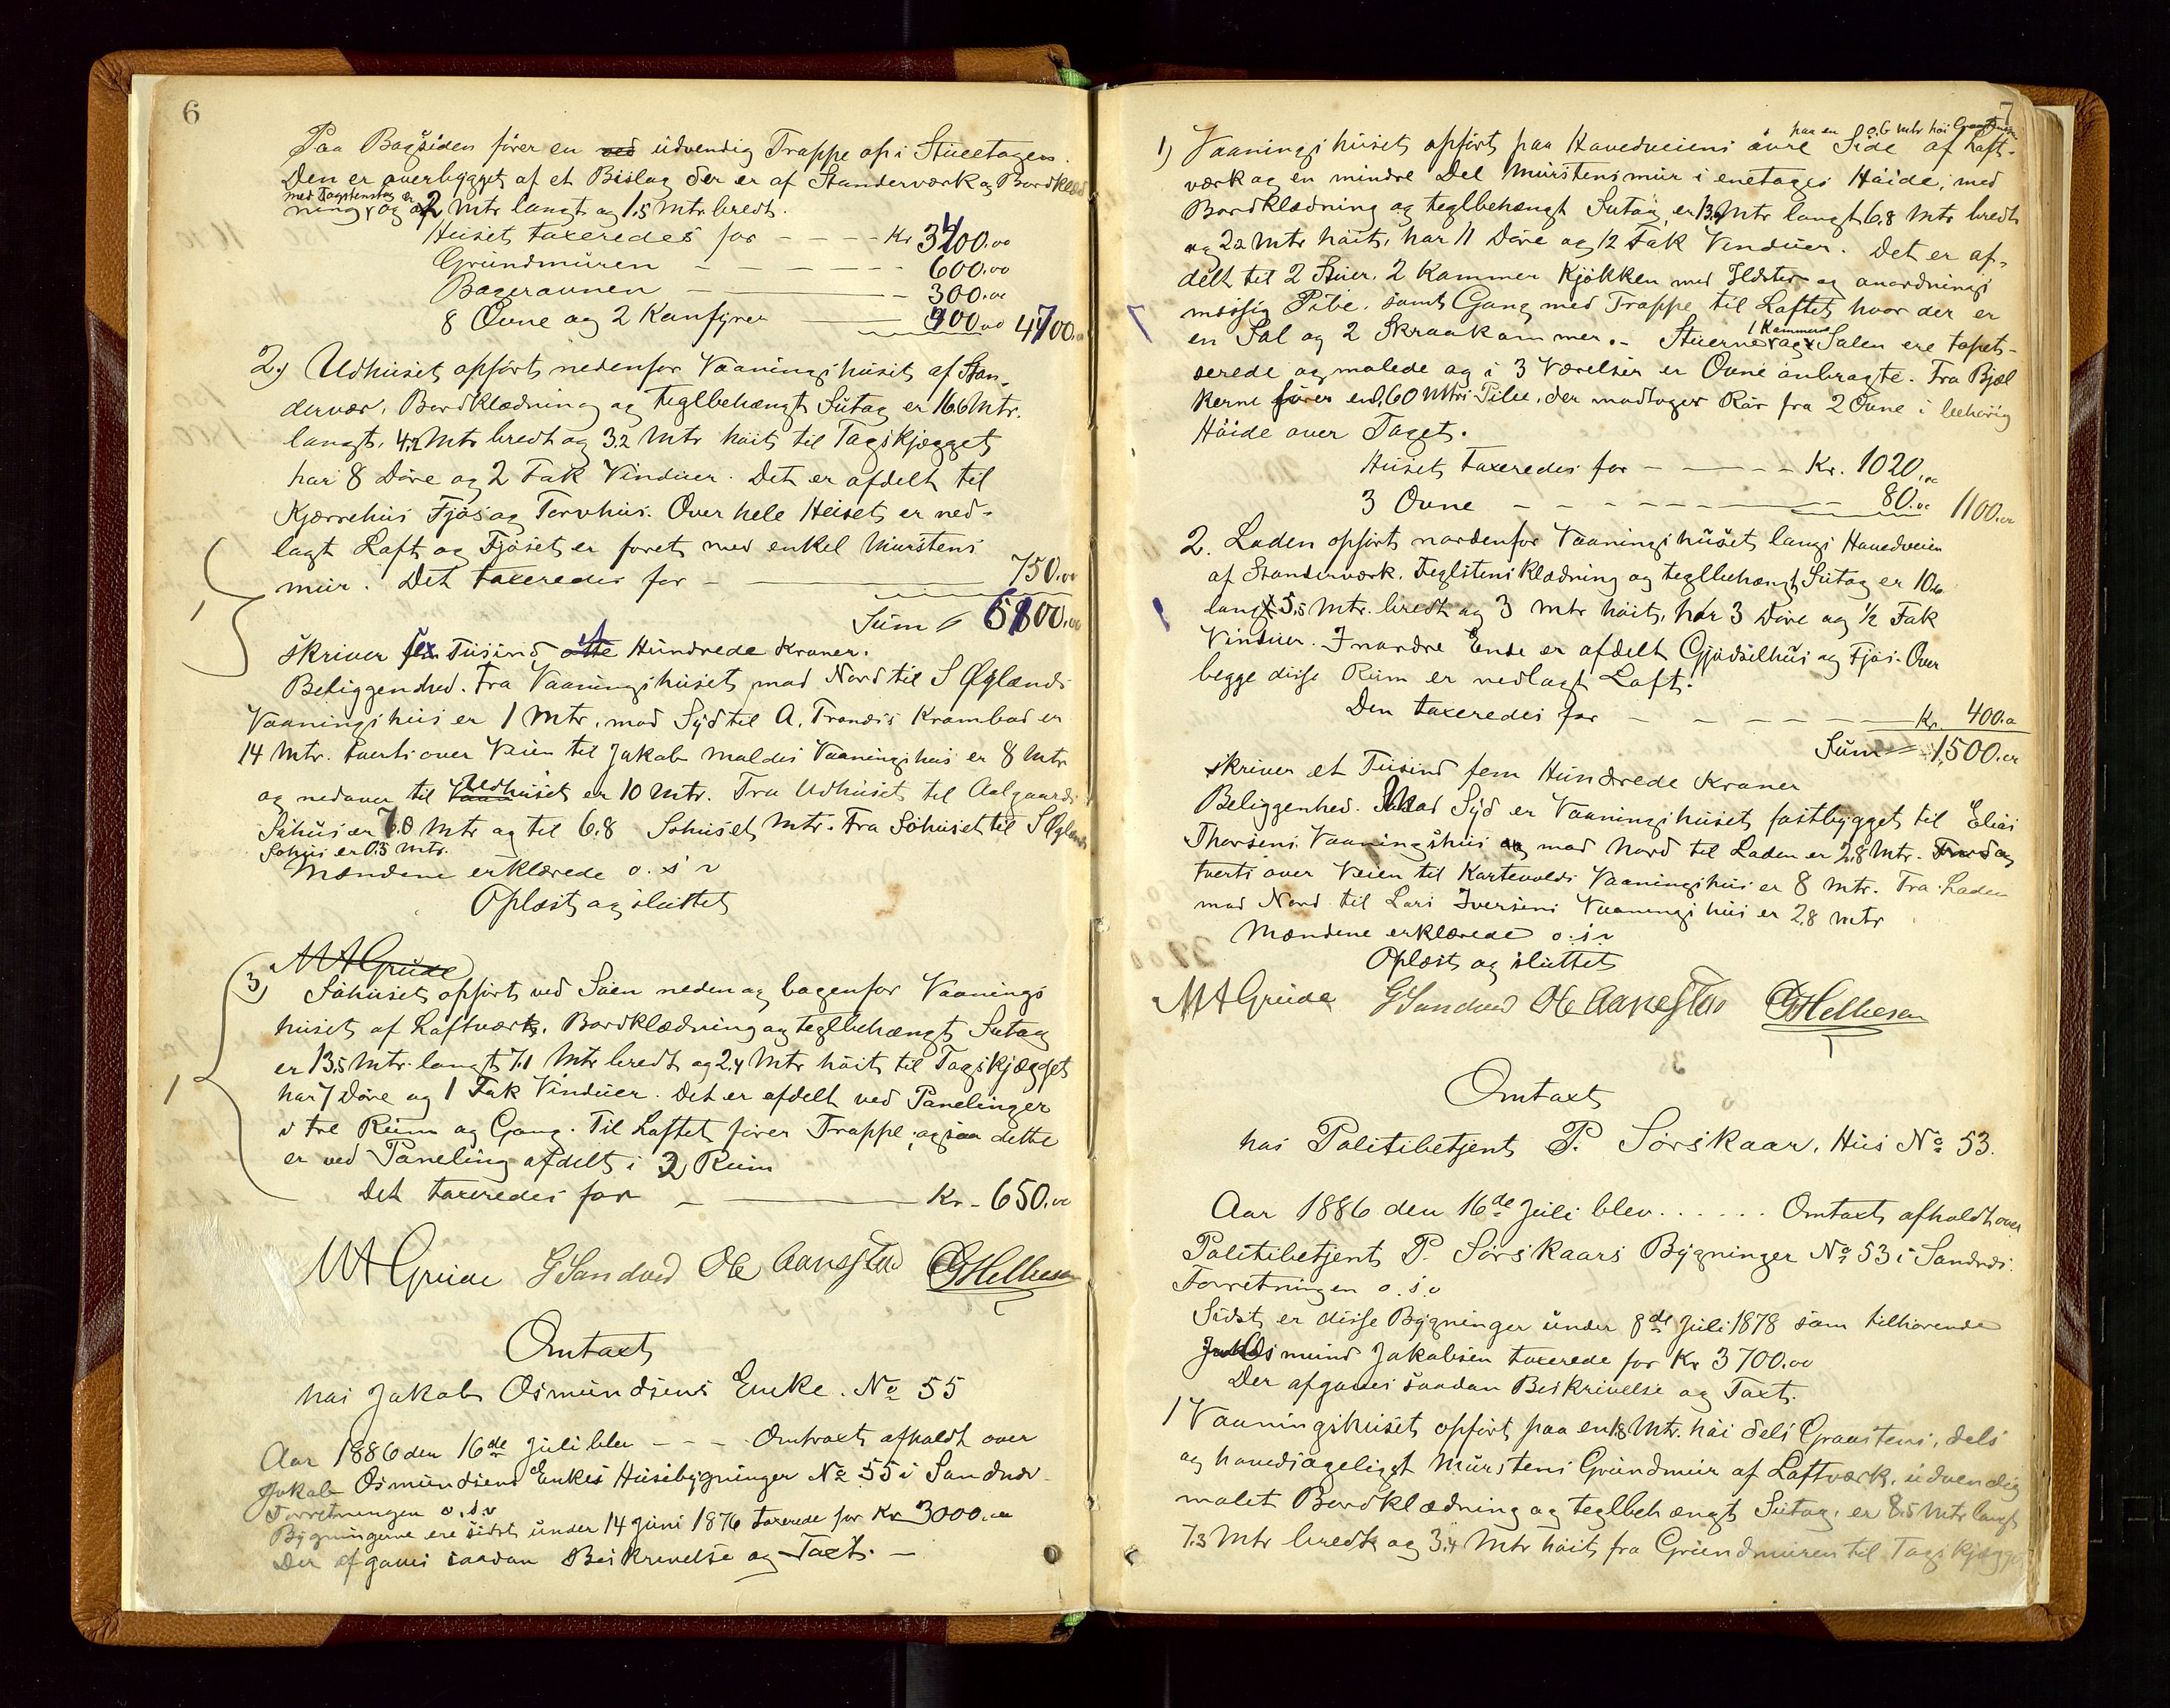 6
Paa Bagsiden fører en ved udvendig Trappe op i Stueetagen.
Den er overbygget af et Bislag der er af Standerværk og Bordklæd
med Tagstenstag er
ning og 2 Mtr langt og 1.5 Mtr bredt.
Huset taxeredes for - - - - Kr 3400.00
Grundmuren - - - - - - 600.00
Bagerovnen - - 300.00
8 Ovne og 2 Komfyrer 400.00 4700.00
2.) Udhuset opført nedenfor Vaaningshuset af Stan-
dervær, Bordklædning og teglbehængt Sutag er 16.6 Mtr.
langt, 4.2 Mtr bredt og 3.2 Mtr høit til Tagskjægget
har 8 Døre og 2 Fak Vinduer. Det er afdelt til
Kjærrehus Fjøs og Torvhus. Over hele Huset er ned-
lagt Loft og Fjøset er foret med enkel Murstens
mur. Det taxeredes for - 750.00
Sum 6100.00
skriver sex Tusind et Hundrede Kroner.
Beliggenhed. Fra Vaaningshuset mod Nord til S Øglænds
Vaaningshus er 1 Mtr, mod Syd til A. Tranes Krambod er
14 Mtr. tverts over Veien til Jakob Maldes Vaaningshus er 8 Mtr
og nedover til Udhuset er 10 Mtr. Fra Udhuset til Aalgaards
Søhus er 7.0 Mtr og til 6.8 Søhuset Mtr. Fra Søhuset til S Øglænds
Søhus er 0.5 Mtr.
Mændene erklærede o. s v
Oplæst og sluttet
M A Grude
3) Søhuset opført ved Søen neden og bagenfor Vaanings
huset af Laftværk, Bordklædning og teglbehængt Sutag
er 13.5 Mtr. langt 7.1 Mtr bredt og 2.4 Mtr høit til Tagskjægget
har 7 Døre og 1 Fak Vinduer. Det er afdelt ved Panelinger
i tre Rum og Gang. Til Loftet fører Trappe, ogsaa dette
er ved Paneling afdelt i 2 Rum
Det taxeredes for - Kr - 650.00
1
1
M A Grude G Sandved Ole Aanestad G Helliesen
Omtaxt
hos Jakob Osmundsens Enke. No 55
Aar 1886 den 16de Juli blev - - - Omtaxt afholdt over
Jakob Osmundsens Enkes Husebygninger No 55 i Sandnæs
Forretningen o. s. v
Bygningerne ere sidst under 14 Juni 1876 taxerede for Kr 3000.00
Der afgaves saadan Beskrivelse og Taxt. -
7
1) Vaaningshuset opført paa Hovedveiens øvre Side paa en 0.6 Mtr høi Graastensmur af Laft-
værk og en mindre Del Murstensmur i enetages Høide, med
Bordklædning og teglbehængt Sutag, er 13.4 Mtr langt 6.8 Mtr bredt
og 2.2 Mtr høit, har 11 Døre og 12 Fak Vinduer. Det er af-
delt til 2 Stuer, 2 Kammer Kjøkken med Ildsted og anordnings
mæssig Pibe, samt Gang med Trappe til Loftet hvor der er
en Sal og 2 Skraakammer. - Stuerne, 1 Kammers og Salen ere tapet-
serede og malede og i 3 Værelser er Ovne anbragte. Fra Bjæl
kerne fører en 0.60 Mtrs Pibe, der modtager Rør fra 2 Ovne i behørig
Høide over Taget.
Huset taxeredes for - - - - Kr. 1020.00
3 Ovne - - - - - - 80.00 1100.00
2. Laden opført nordenfor Vaaningshuset langs Hovedveien
af Standerværk, Teglstens klædning og teglbehængt Sutag er 10.0
langt 5.5 Mtr. bredt og 3 Mtr høit, har 3 Døre og 1/2 Fak
Vinduer. I nordre Ende er afdelt Gjødselhus og Fjøs. Over
begge disse Rum er nedlagt Loft.
Den taxeredes for - - - - - - Kr. 400.00
Sum = 1,500.00
skriver et Tusind fem Hundrede Kroner
Beliggenhed. Mod Syd er Vaaningshuset fastbygget til Elias
Thorsens Vaaningshus og mod Nord til Laden er 2.8 Mtr.
tverts over Veien til Kartevolds Vaaningshus er 8 Mtr. Fra Laden
mod Nord til Lars Iversens Vaaningshus er 2.8 Mtr
Mændene erklærede o. s. v
Oplæst og sluttet
M A Grude G Sandved Ole Aanestad G Helliesen
Omtaxt
hos Politibetjent P. Sørskaar, Hus No 53.
Aar 1886 den 16de Juli blev . . . . . . Omtaxt afholdt over
Politibetjent P. Sørskaars Bygninger No 53 i Sandnæs.
Forretningen o. s. v
Sidst er disse Bygninger under 8de Juli 1878 som tilhørende
Osmund Jakobsen taxerede for Kr 3700.00
Der afgaves saadan Beskrivelse og Taxt.
1 Vaaningshuset opført paa en 1.8 Mtr. høi dels Graastens, dels
og hovedsageligst Murstens Grundmur af Laftværk, udvendig
malet Bordklædning og teglbehængt Sutag, er 8.5 Mtr langt
7.3 Mtr bredt og 3.4 Mtr høit fra Grundmuren til Tagskjægget